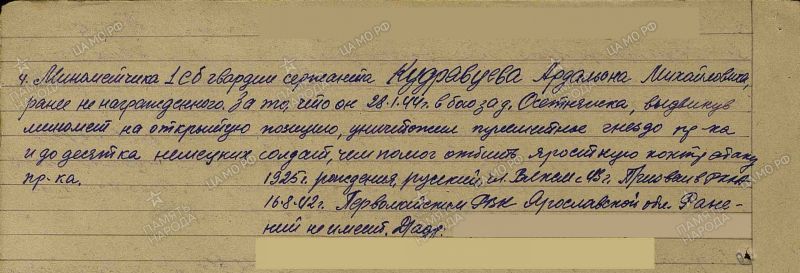 4. Минометчика 1 сб гвардии сержанта Кудрявцева Ардальона Михайловича,
ранее не награжденного. За то, что он 28.1.44г. в бою за д. Осетняжка, выдвинув
миномет на открытую позицию, уничтожил пулеметное гнездо пр-ка
и до десятка немецких солдат, чем помог отбить яростную контратаку
пр-ка. 1925г. рождения, русский, чл. ВЛКСМ с 43г. Призван в РККА
16.8.42г. Первомайским РВК Ярославской обл. Ране-
ний не имеет.